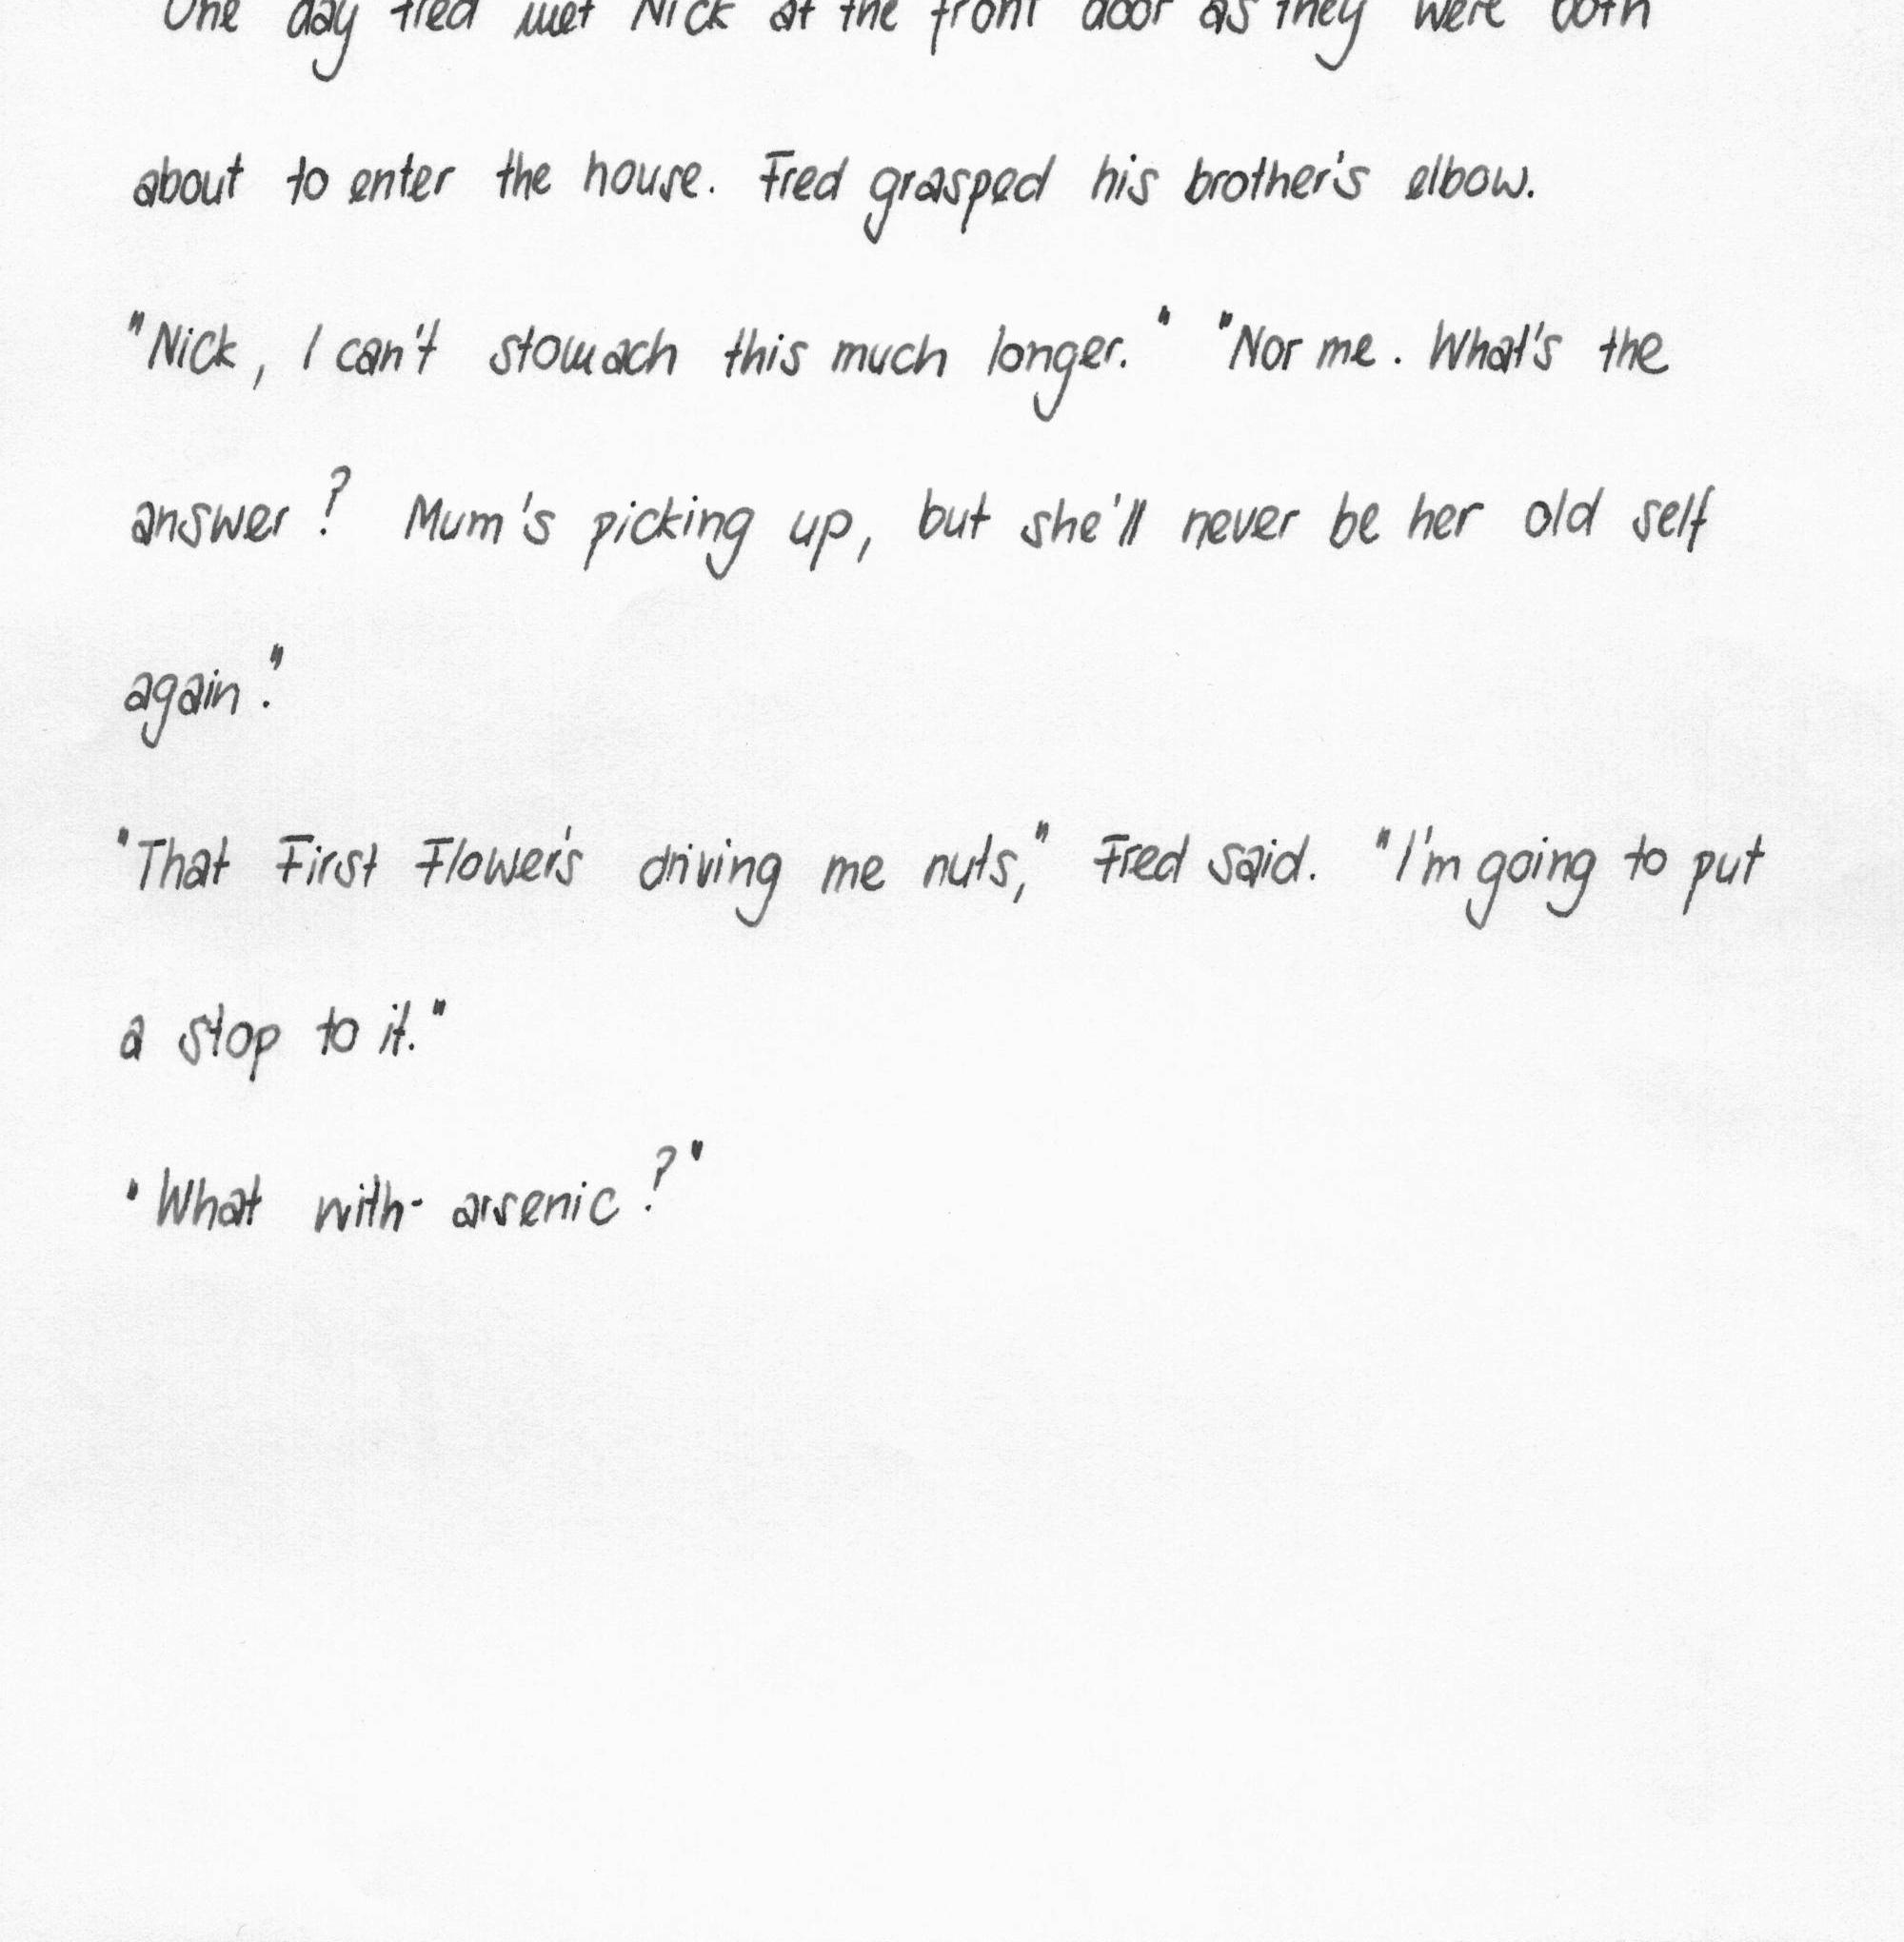 One day Fred met Nick at the front door as they were both
about to enter the house. Fred grasped his brother's elbow.
"Nick, I can't stomach this much longer." "Nor me. What's the
answer? Mum's picking up, but she'll never be her old self
again."
"That First Flower's driving me nuts," Fred said. "I'm going to put
a stop to it."
"What with- arsenic?"